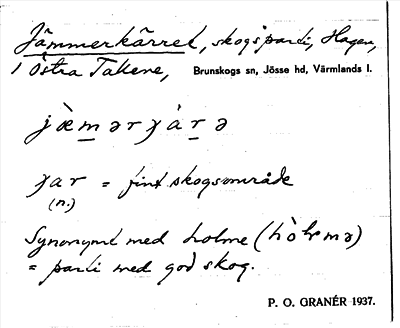 Jämmerkärret, skogsparti, Hagen,
i Östra Takene, Brunskogs sn, Jösse hd, Värmlands l.
jæ̀mərɟárə
ɟar = fint skogsområde
(n.)
Synonymt med holme (hòlmə)
= parti med god skog.
P. O. GRANÉR 1937.